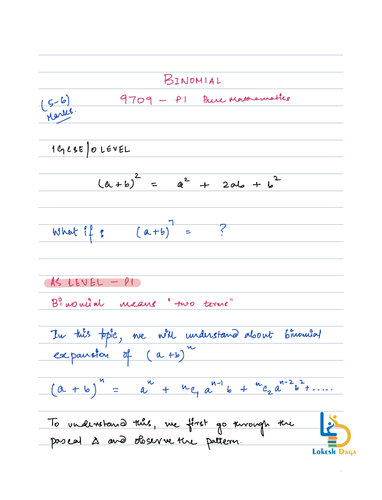 BINOMIAL
(5-6) Marks.
9709 - P1 Pure Mathematics
IGCSE/O LEVEL
(a+b)² = a² + 2ab + b²
What if : (a+b)⁷ = ?
AS LEVEL - P1
Binomial means "two terms"
In this topic, we will understand about binomial
expansion of (a+b)ⁿ
(a + b)ⁿ = aⁿ + ⁿC₁ aⁿ⁻¹ b + ⁿC₂ aⁿ⁻² b² + .....
To understand this, we first go through the
pascal Δ and observe the pattern.
LOKESH DAGA